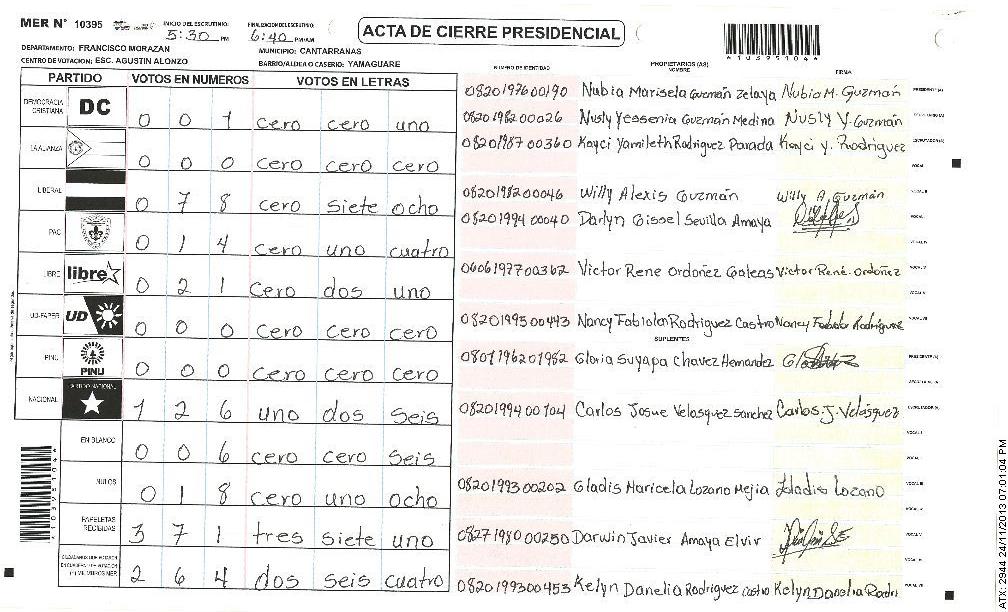 MER N° 10395
INICIO DEL ESCRUTINIO: 5:30 PM
FINALIZACION DEL ESCRUTINIO: 6:40 PM/AM
ACTA DE CIERRE PRESIDENCIAL
*10395104*
DEPARTAMENTO: FRANCISCO MORAZAN
MUNICIPIO: CANTARRANAS
CENTRO DE VOTACION: ESC. AGUSTIN ALONZO
BARRIO/ALDEA O CASERIO: YAMAGUARE
PARTIDO VOTOS EN NUMEROS VOTOS EN LETRAS
NUMERO DE IDENTIDAD PROPIETARIOS (AS) NOMBRE FIRMA
DEMOCRACIA CRISTIANA DC 0 0 1 cero cero uno
LA ALIANZA 0 0 0 cero cero cero
LIBERAL 0 7 8 cero siete ocho
PAC 0 1 4 cero uno cuatro
LIBRE libre 0 2 1 cero dos uno
UD-FAPER UD 0 0 0 cero cero cero
PINU PINU 0 0 0 cero cero cero
NACIONAL PARTIDO NACIONAL 1 2 6 uno dos seis
EN BLANCO 0 0 6 cero cero seis
NULOS 0 1 8 cero uno ocho
PAPELETAS RECIBIDAS 3 7 1 tres siete uno
2 6 4 dos seis cuatro
0820197600190 Nubia Marisela Guzmán Zelaya Nubia M. Guzmán PRESIDENTE(A)
0820198200026 Nusly Yessenia Guzmán Medina Nusly Y. Guzmán
0820198700360 Kayci Yamileth Rodriguez Parada Kayci Y. Rodriguez ESCRUTADOR(A)
VOCAL I
0820198200046 Willy Alexis Guzmán Willy A Guzmán VOCAL II
0820199400040 Darlyn Gissel Sevilla Amaya
VOCAL IV
0606197700362 Victor Rene Ordoñez Galeas Victor René. Ordoñez VOCAL V
VOCAL VI
0820199500443 Nancy Fabiola Rodriguez Castro Nancy Fabiola Rodriguez VOCAL VII
SUPLENTES
0801196201982 Gloria Suyapa Chavez Hernandez PRESIDENTE(A)
0820199400104 Carlos Josue Velasquez Sanchez Carlos. J. Velásquez ESCRUTADOR(A)
VOCAL I
0820199300202 Gladis Maricela Lozano Mejia Gladis Lozano VOCAL III
0827198000250 Darwin Javier Amaya Elvir
0820199300453 Kelyn Danelia Rodriguez Castro Kelyn Danelia Rodri VOCAL VII
*10395104*
ATX: 2944 24/11/2013 07:01:04 PM